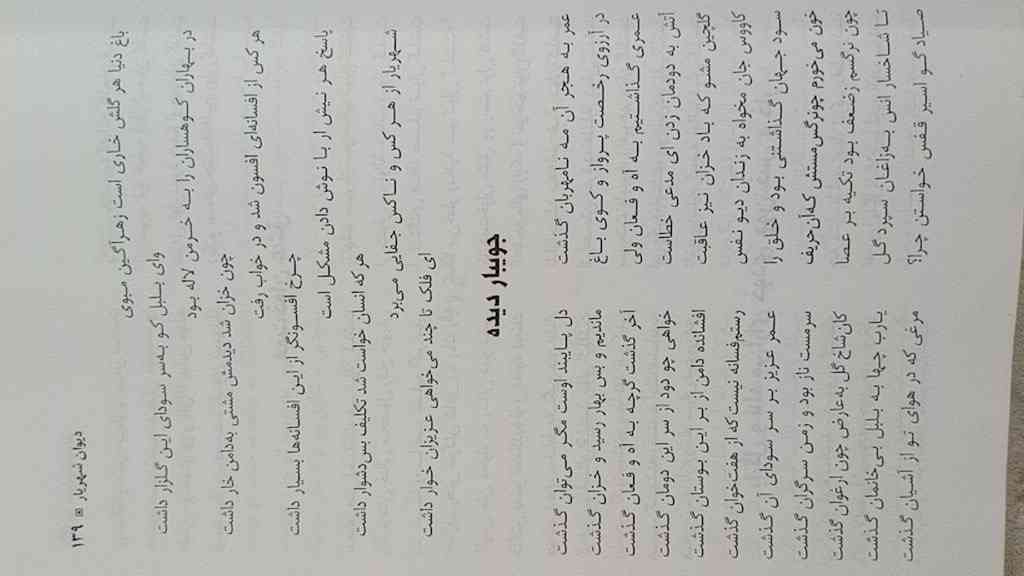 ۱۳۹ ▣ دیوان شهریار
باغ دنیا هر گلش خاری است زهرآگین مبوی
وای بلبل کو به‌سر سودای این گلزار داشت
در بهاران کوهساران را به خرمن لاله بود
چون خزان شد دیدمش مشتی به‌دامن خار داشت
هر کس از افسانه‌ای افسون شد و در خواب رفت
چرخ افسونگر از این افسانه‌ها بسیار داشت
پاسخ هر نیش ار با نوش دادن مشکل است
هر که انسان خواست شد تکلیف بس دشوار داشت
شهریار از هر کس و ناکس جفایی می‌برد
ای فلک تا چند می‌خواهی عزیزان خوار داشت
جویبار دیده
عمر به هجر آن مه نامهربان گذشت دل پایبند اوست مگر می‌توان گذشت
در آرزوی رخصت پرواز و کوی باغ ماندیم و بس بهار رسید و خزان گذشت
عمری گذاشتیم به آه و فغان ولی آخر گذشت گرچه به آه و فغان گذشت
آتش به دودمان زدن ای مدعی خطاست خواهی چو دود از سر این دودمان گذشت
گلچین مشو که باد خزان نیز عاقبت افشانده دامن از بر این بوستان گذشت
کاووس جان مخواه به زندان دیو نفس رستم فسانه نیست که از هفت‌خوان گذشت
سود جهان گذاشتنی بود و خلق را عمر عزیز بر سر سودای آن گذشت
خون می‌خورم چو نرگس مستش که آن حریف سرمست ناز بود و زمن سرگران گذشت
چون نرگسم ز ضعف بود تکیه بر عصا کان شاخ گل به عارض چون ارغوان گذشت
تا شاخسار انس به زاغان سپرد گل یارب چها به بلبل بی‌خانمان گذشت
صیاد گو اسیر قفس خواستن چرا؟ مرغی که در هوای تو از آشیان گذشت